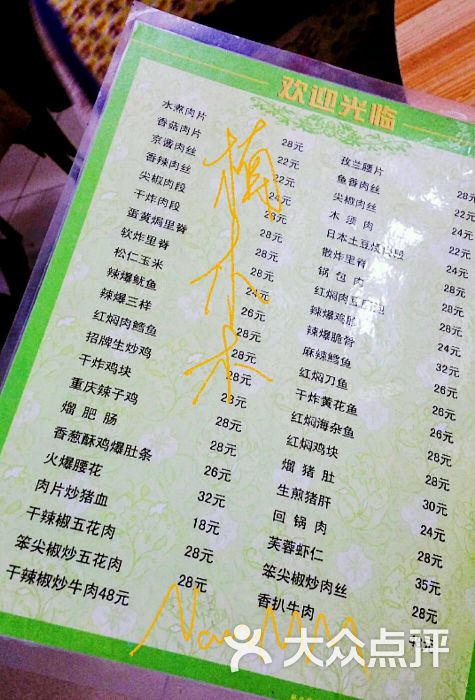 欢迎光临
水煮肉片 28元
香菇肉片 22元
京酱肉丝 22元
香辣肉丝 24元
尖椒肉段 28元
干炸肉段 28元
蛋黄焗里脊 28元
软炸里脊 28元
松仁玉米 24元
辣爆鱿鱼 26元
辣爆三样 28元
红焖肉鳕鱼 28元
招牌生炒鸡 28元
干炸鸡块 28元
重庆辣子鸡 28元
熘肥肠 28元
香葱酥鸡爆肚条 26元
火爆腰花 32元
肉片炒猪血 18元
干辣椒五花肉 28元
笨尖椒炒五花肉 28元
干辣椒炒牛肉48元
孜兰腰片 28元
鱼香肉丝 22元
尖椒肉丝
木须肉 24元
日本土豆烧肉段
散炸里脊
锅包肉
红焖肉豆腐泡
辣爆鸡胗
辣爆脆骨
麻辣鳕鱼
红焖刀鱼
干炸黄花鱼
红焖海杂鱼 26元
红焖鸡块 28元
熘猪肚 30元
生煎猪肝 24元
回锅肉 28元
芙蓉虾仁 35元
笨尖椒炒肉丝 28元
香扒牛肉
楠木木
大众点评